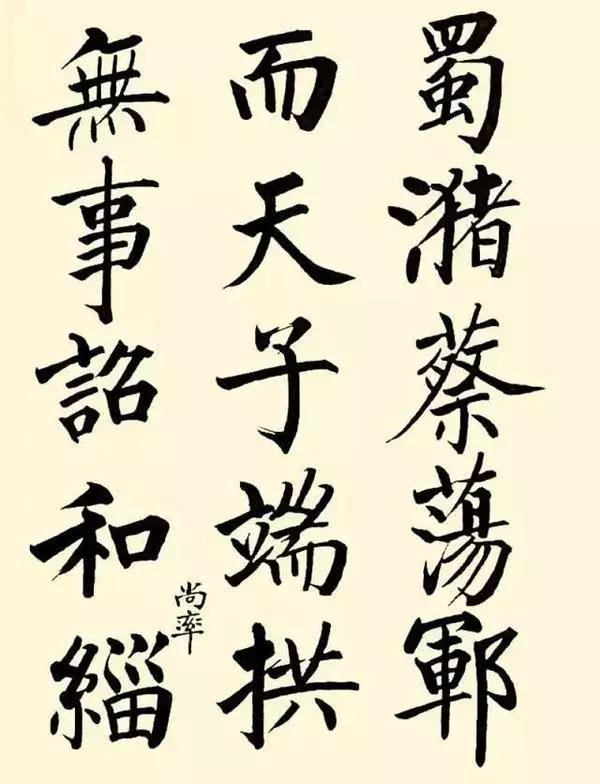 蜀潴蔡蕩鄆
而天子端拱
尚率
無事詔和緇